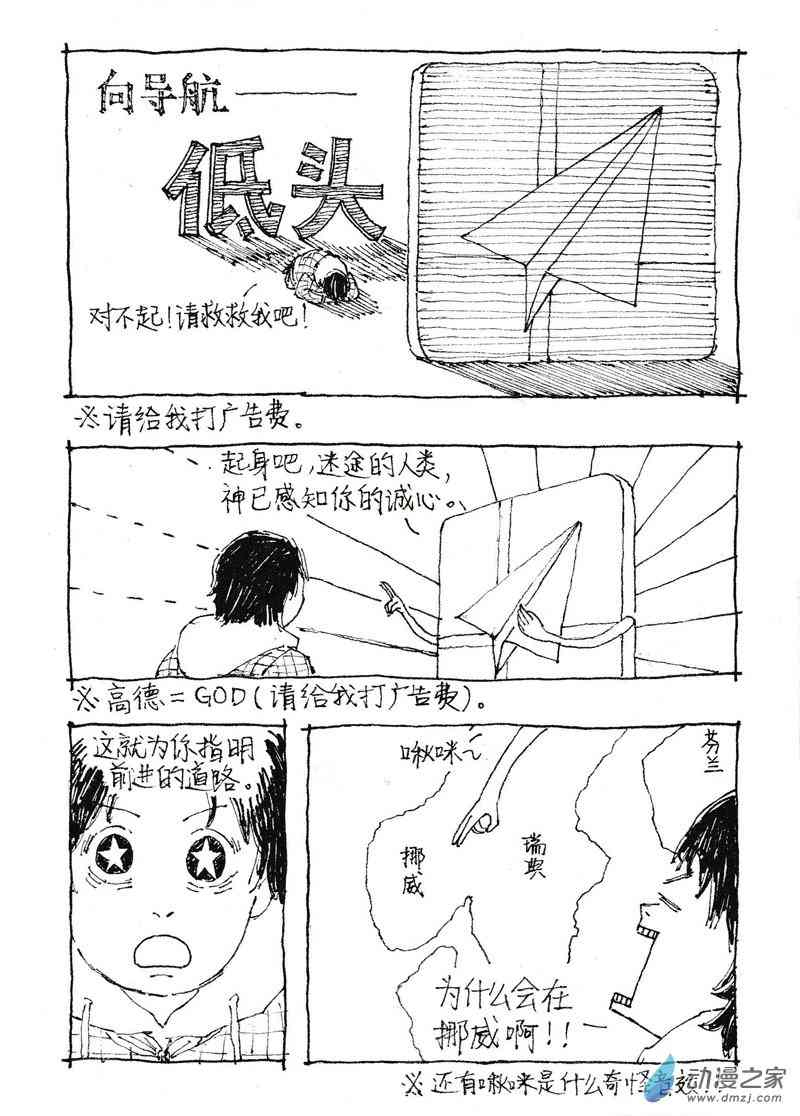 向导航——
低头
对不起！请救救我吧！
※请给我打广告费。
起身吧，迷途的人类，
神已感知你的诚心。
※高德＝GOD(请给我打广告费)。
这就为你指明
前进的道路。
啾咪～
芬兰
挪威
瑞典
为什么会在
挪威啊！！
※还有啾咪是什么奇怪
动漫之家
www.dmzj.com